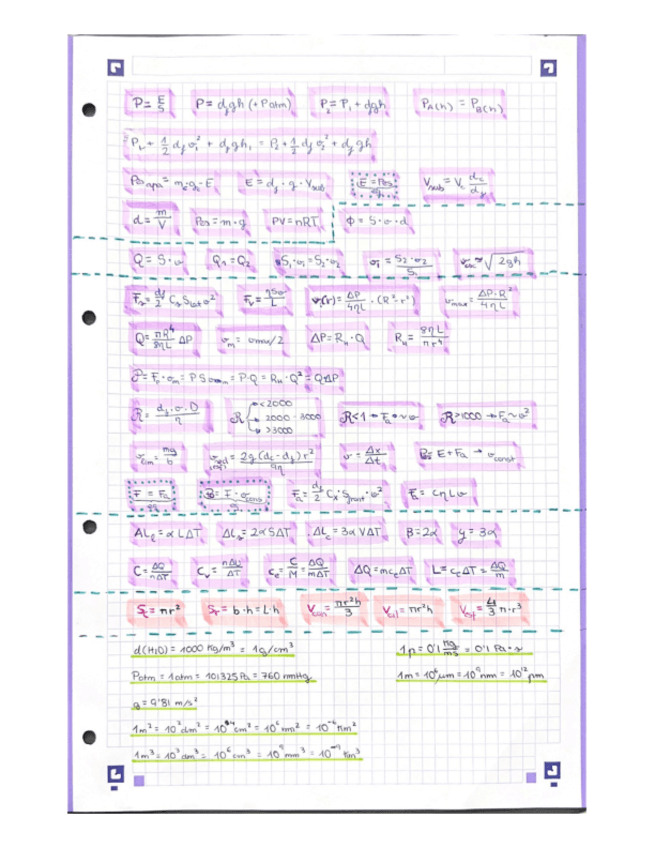 P = E/S   P = d_f gh (+ Patm)   P₂ = P₁ + dgh   P_A(h) = P_B(h)
P₁ + 1/2 d_f v₁² + d_f gh₁ = P₂ + 1/2 d_f v₂² + d_f gh
E = d_f · g · V_sub   V_sub = V_c d_c/d_f
d = m/V   Pes = m · g   PV = nRT   Φ = S · v · d
Q = S · v   Q₁ = Q₂   S₁ · v₁ = S₂ · v₂   v₁ = S₂ · v₂/S₁   √2gh
F_a = d_f/2 C_x S_front v²   F_v = ηSv/L   v(r) = ΔP/4ηL · (R² - r²)   v_max = ΔP · R²/4ηL
Q = πR⁴/8ηL ΔP   v_m = vmax/2   ΔP = R_H · Q   R_H = 8ηL/πr⁴
P = F · v_m = PSv_m = P · Q = R_H · Q² = QΔP
R = d_f · v · D/η   R <2000 2000 - 3000 >3000   R<1 → F_a ~ v   R>1000 → F_a ~ v²
v_lim = mg/b   v_sed = 2g(d_c - d_f)r²/9η   v = Δx/Δt   Pes = E + Fa → v const
F = Fa   P = F · v_const   F_a = d_f/2 C_x · S_front · v²   F_a = cηLv
ΔL = αLΔT   ΔL_s = 2αSΔT   ΔL_c = 3αVΔT   β = 2α   γ = 3α
C = ΔQ/nΔT   c_e = C/M = ΔQ/mΔT   ΔQ = mc_eΔT   L = c_eΔT = ΔQ/m
S_c = πr²   S_r = b · h = L · h   V_con = πr²h/3   V_cil = πr²h   V_esf = 4/3 π · r³
d(H₂O) = 1000 Kg/m³ = 1g/cm³   1p = 0'1 kg/ms = 0'1 Pa · s
Patm = 1atm = 101325 Pa = 760 mmHg   1m = 10⁶ μm = 10⁹ nm = 10¹² pm
g = 9'81 m/s²
1m² = 10² dm² = 10⁴ cm² = 10⁶ mm² = 10⁻⁶ Km²
1m³ = 10³ dm³ = 10⁶ cm³ = 10⁹ mm³ = 10⁻⁹ Km³